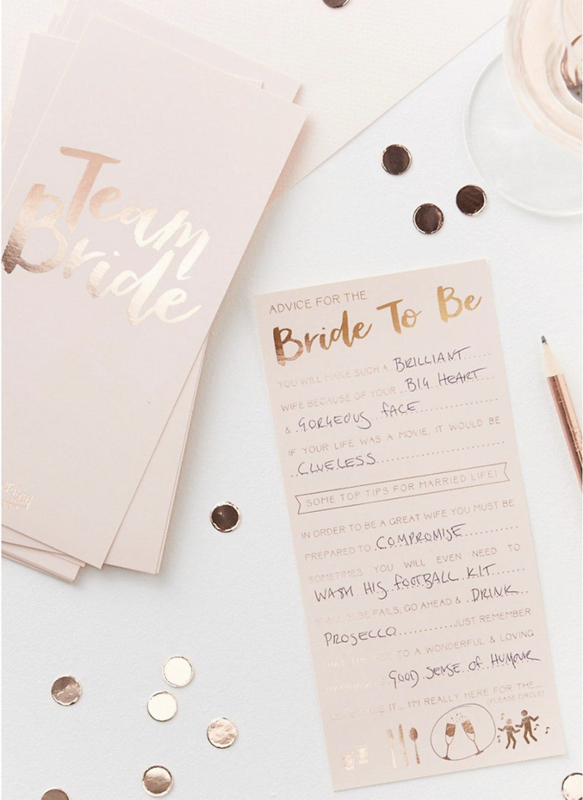 Team
Bride
ADVICE FOR THE
Bride To Be
YOU WILL MAKE SUCH A BRILLIANT
WIFE BECAUSE OF YOUR BIG HEART
& GORGEOUS FACE
IF YOUR LIFE WAS A MOVIE, IT WOULD BE
CLUELESS
SOME TOP TIPS FOR MARRIED LIFE!
IN ORDER TO BE A GREAT WIFE YOU MUST BE
PREPARED TO COMPROMISE
SOMETIMES YOU WILL EVEN NEED TO
WASH HIS FOOTBALL KIT
FAILS, GO AHEAD & DRINK
PROSECCO JUST REMEMBER
TO A WONDERFUL & LOVING
GOOD SENSE OF HUMOUR
IT... I'M REALLY HERE FOR THE...
(PLEASE CIRCLE)